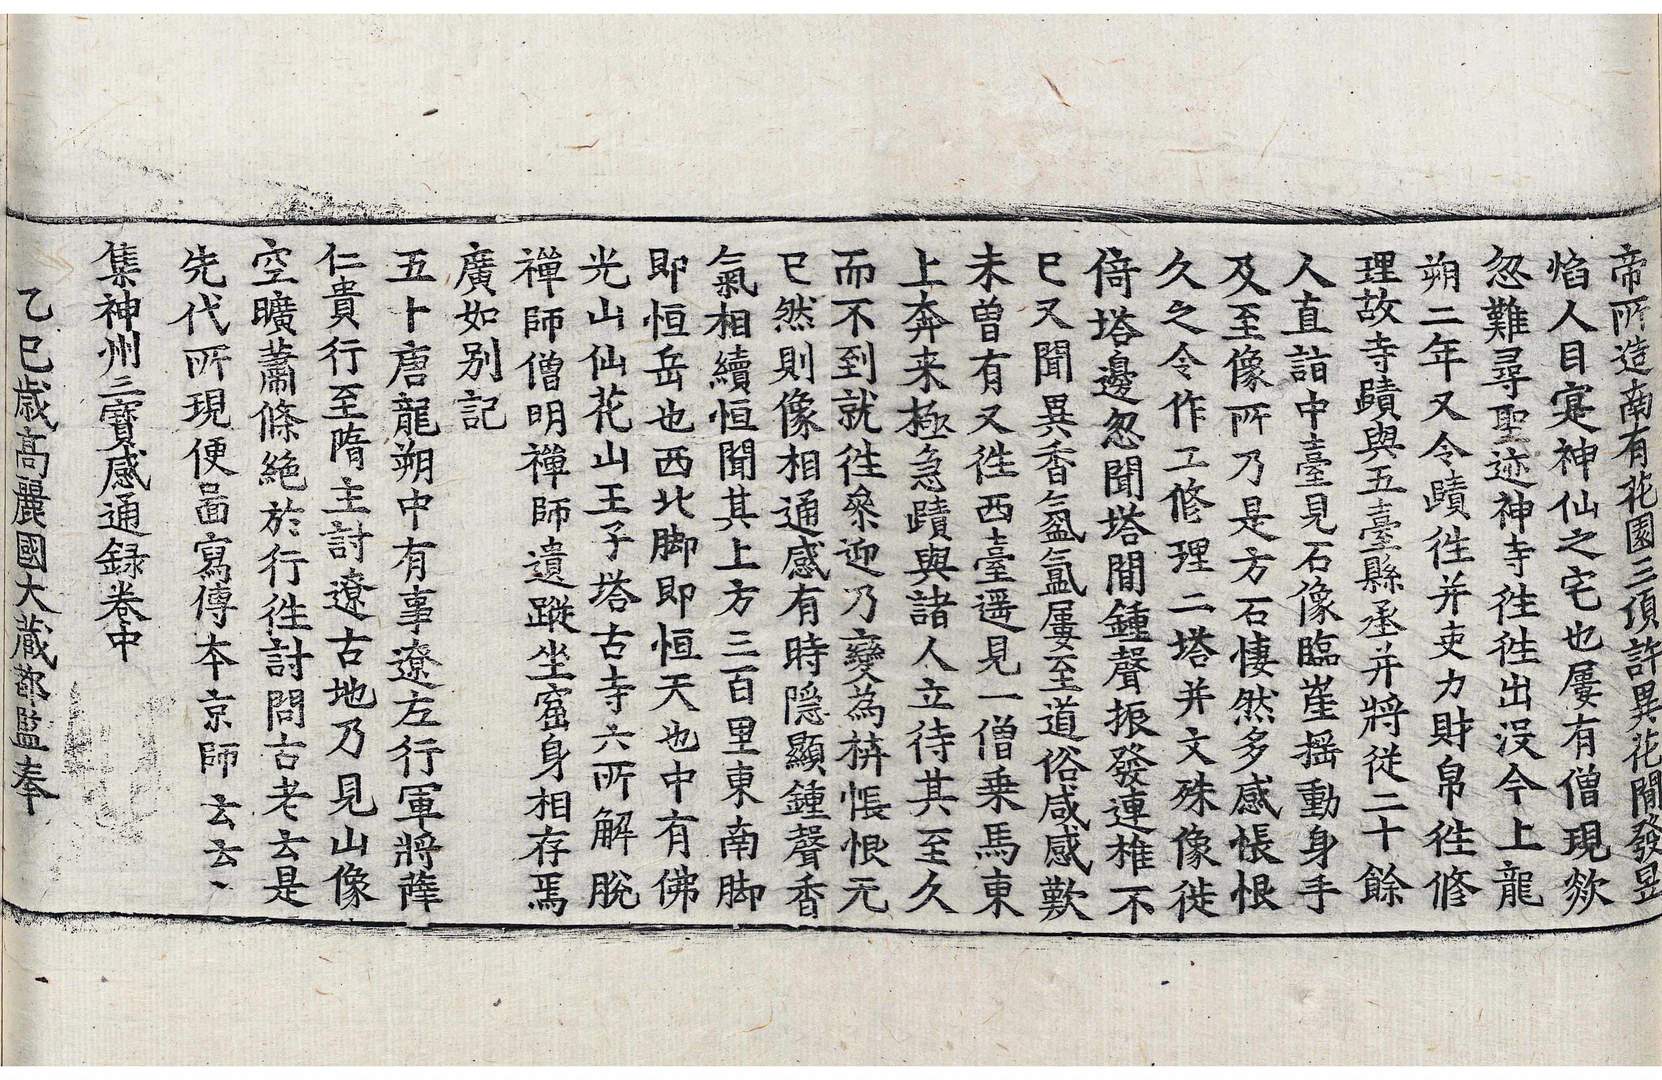 帝所造南有花園三頃許異花間發昱
焰人目寔神仙之宅也屢有僧現欻
忽難尋聖迹神寺徃徃出没今上龍
朔二年又令𧷤徃并吏力財帛徃修
理故寺𧷤與五臺縣丞并將從二十餘
人直詣中臺見石像臨崖揺動身手
及至像所乃是方石悽然多感悵恨
久之令作工修理二塔并文殊像徙
倚塔邊忽聞塔間鍾聲振發連椎不
已又聞異香氛氳屢至道俗咸感歎
未曽有又徃西臺遥見一僧乗馬東
上奔来極急𧷤與諸人立待其至久
而不到就徃叅迎乃變為枿悵恨无
已然則像相通感有時隱顯鍾聲香
氣相續恒聞其上方三百里東南脚
即恒岳也西北脚即恒天也中有佛
光山仙花山王子塔古寺六所解脫
禪師僧明禪師遺蹤坐窟身相存焉
廣如別記
五十唐龍朔中有事遼左行軍將薛
仁貴行至隋主討遼古地乃見山像
空曠蕭條絶於行徃討問古老云是
先代所現便啚寫傳本京師云云、
集神州三寶感通録卷中
乙巳歳高麗國大藏都監奉